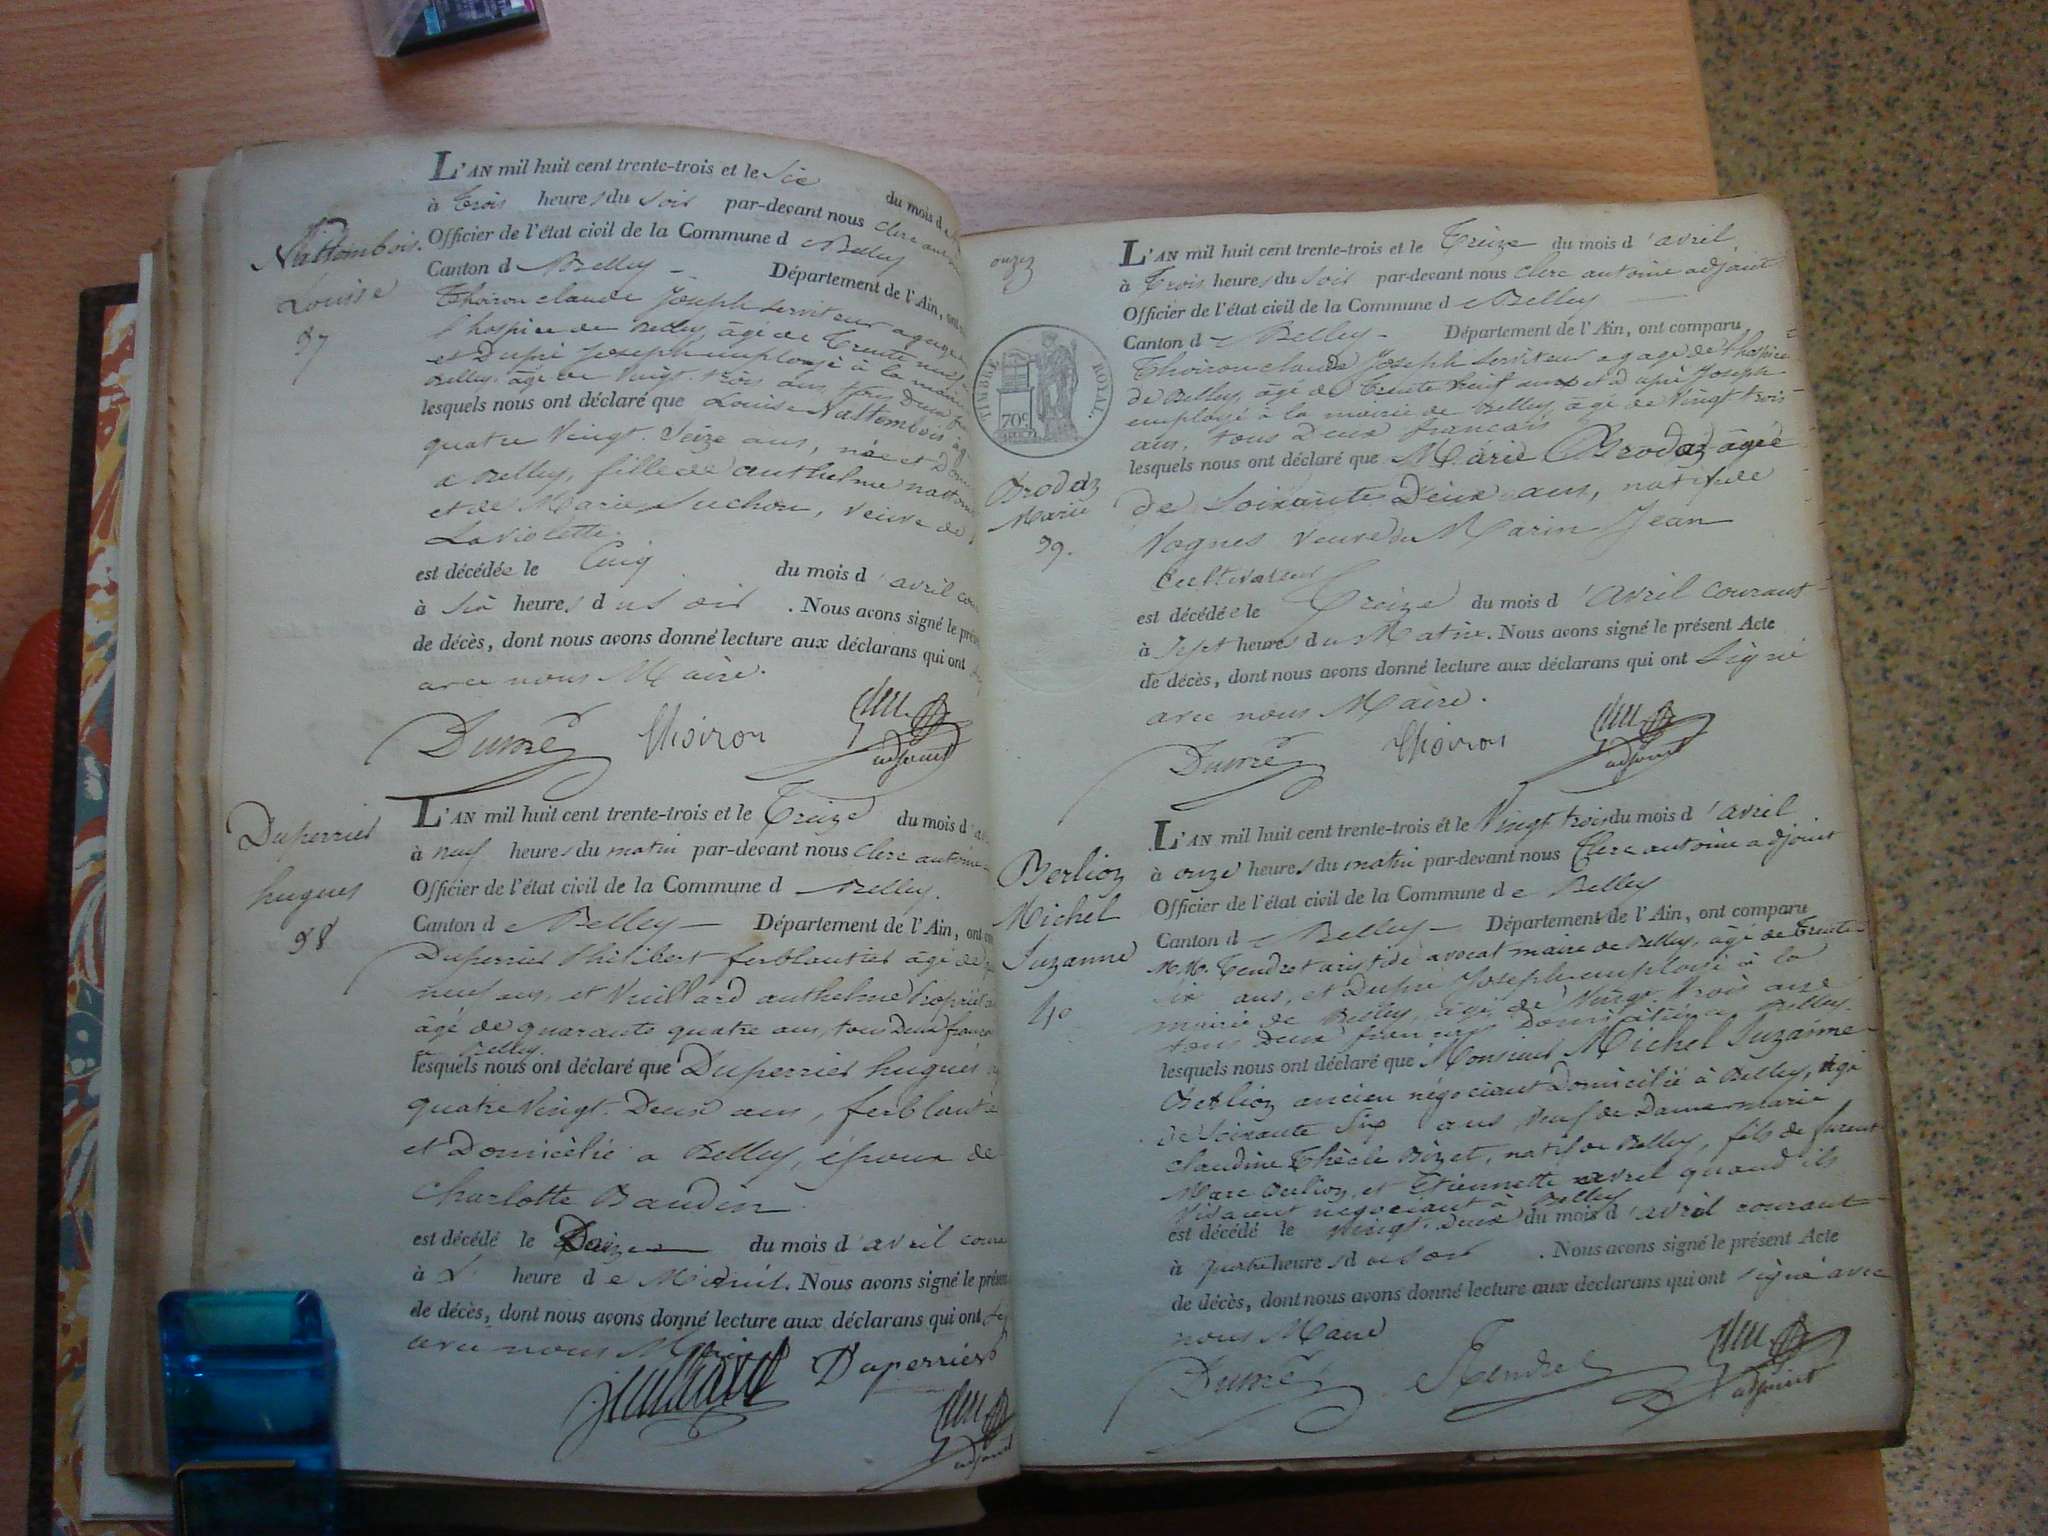 Nattembois
Louise
37
L'AN mil huit cent trente-trois et le Six du mois d
à trois heures du soir par-devant nous clerc
Officier de l'état civil de la Commune de Belley
Canton de Belley Département de l'Ain, ont
Thoiron claude Joseph serviteur a gage
l'hospice de Belley, âgé de trente neuf
et Dupré Joseph employé à la mairie
Belley, âgé de vingt trois ans, tous deux
lesquels nous ont déclaré que Louise Nattembois
quatre vingt Seize ans, née et
a Belley, fille de anthelme
et de Marie Suchon, veuve de
Laviolette.
est décédée le Cinq du mois d'avril
à Six heures du soir. Nous avons signé le
de décès, dont nous avons donné lecture aux déclarans qui ont
avec nous Maire.
Dupré Thoiron adjoint
Duperrier
hugues
38
L'AN mil huit cent trente-trois et le Treize du mois d
à neuf heures du matin par-devant nous Clerc antoine
Officier de l'état civil de la Commune d Belley.
Canton de Belley Département de l'Ain, ont
Duperrier Philibert ferblantier âgé de
neuf ans, et Vuillard anthelme
âgé de quarante quatre ans, tous deux
a Belley.
lesquels nous ont déclaré que Duperrier hugues
quatre Vingt Deux ans,
et Domicilié a Belley, époux de
Charlotte Baudin
est décédé le du mois d'avril
à heure de Minuit. Nous avons signé le
de décès, dont nous avons donné lecture aux déclarans qui ont
avec nous
Duperrier
adjoint
onze
TIMBRE ROYAL.
70c
Brodaz
Marie
39.
L'AN mil huit cent trente-trois et le Treize du mois d'avril,
à Trois heures du soir par-devant nous clerc antoine adjoint
Officier de l'état civil de la Commune de Belley
Canton de Belley Département de l'Ain, ont comparu
Thoiron claude Joseph serviteur a gage de l'hospice
de Belley, âgé de trente neuf ans et Dupré Joseph
employé à la mairie de Belley, âgé de vingt trois
ans, tous deux francais
lesquels nous ont déclaré que Marie Brodaz âgée
de Soixante Deux ans, native de
Vognes veuve de Marin Jean
Cultivateur
est décédée le Treize du mois d'avril courant
à Sept heures du Matin. Nous avons signé le présent Acte
de décès, dont nous avons donné lecture aux déclarans qui ont Signé
avec nous Maire.
Dupré Thoiron adjoint
Berlioz
Michel
Suzanne
40
L'AN mil huit cent trente-trois et le Vingt trois du mois d'avril
à onze heures du matin par-devant nous Clerc antoine adjoint
Officier de l'état civil de la Commune de Belley
Canton de Belley Département de l'Ain, ont comparu
M.M. Tendret aristide avocat maire de Belley, âgé de trente
six ans, et Dupré Joseph employé à la
mairie de Belley, âgé de Vingt Trois ans
tous deux français domiciliés a Belley.
lesquels nous ont déclaré que Monsieur Michel Suzanne
Berlioz ancien négociant domicilié à Belley, âgé
de soixante Six ans, veuf de Dame marie
claudine Thècle Bizet, natif de Belley, fils de furent
Marc Berlioz, et Etiennette avril quand ils
vivaient négociant à Belley
est décédé le vingt Deux du mois d'avril courant
à quatre heures du soir. Nous avons signé le présent Acte
de décès, dont nous avons donné lecture aux déclarans qui ont signé avec
nous Maire
Dupré Tendret adjoint